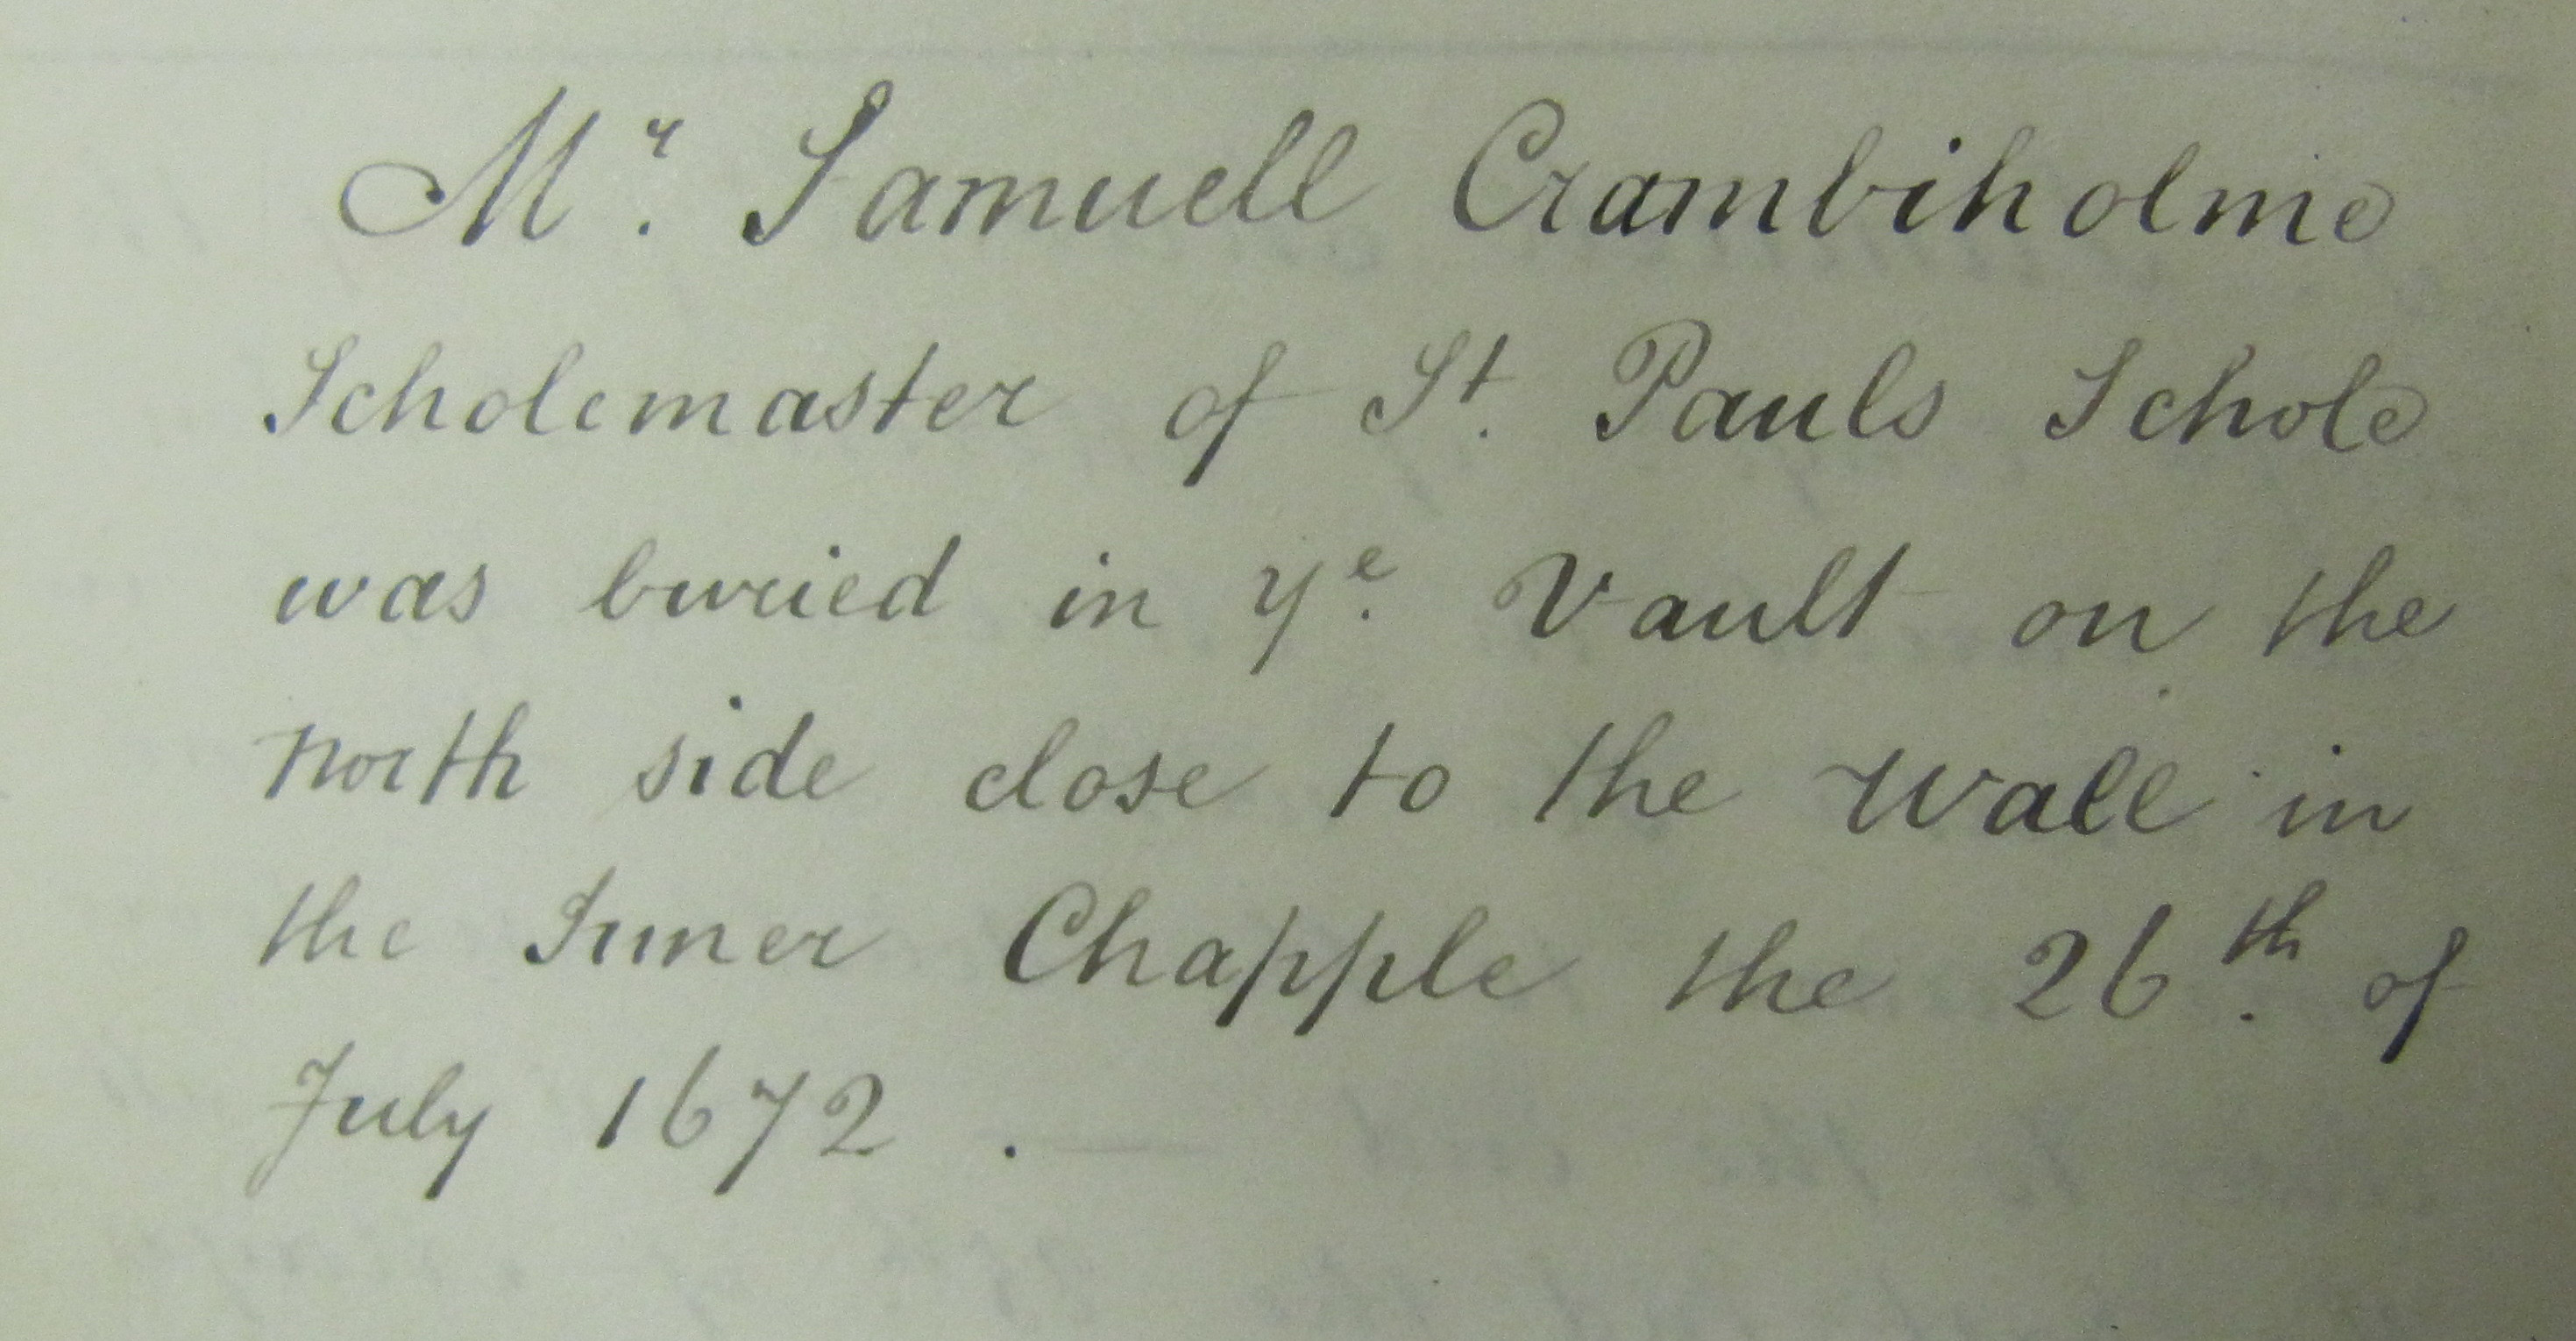 Mr. Samuell Crambiholme
Scholemaster of St. Pauls Schole
was buried in ye. Vault on the
north side close to the wall in
the Inner Chapple the 26th. of
July 1672 . —